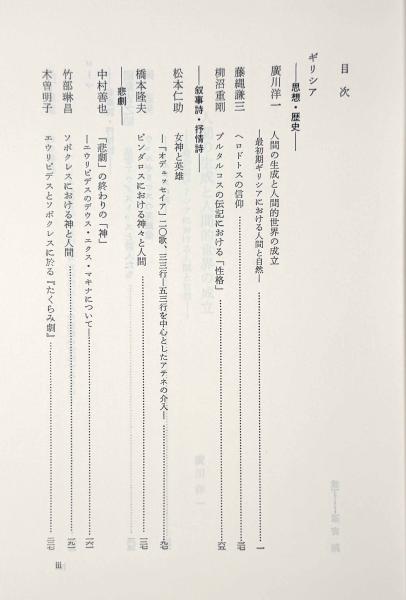 目次
ギリシア
――思想・歴史――
廣川洋一 人間の生成と人間的世界の成立
―最初期ギリシアにおける人間と自然― 一
藤縄謙三 ヘロドトスの信仰
柳沼重剛 プルタルコスの伝記における「性格」
――叙事詩・抒情詩――
松本仁助 女神と英雄
―『オデュッセイア』二〇歌、三三行―五三行を中心としたアテネの介入―
橋本隆夫 ピンダロスにおける神々と人間
――悲劇――
中村善也 「悲劇」の終わりの「神」
―エウリピデスのデウス・エクス・マキナについて―
竹部琳昌 ソポクレスにおける神と人間
木曽明子 エウリピデスとソポクレスに於る『たくらみ劇』
iii